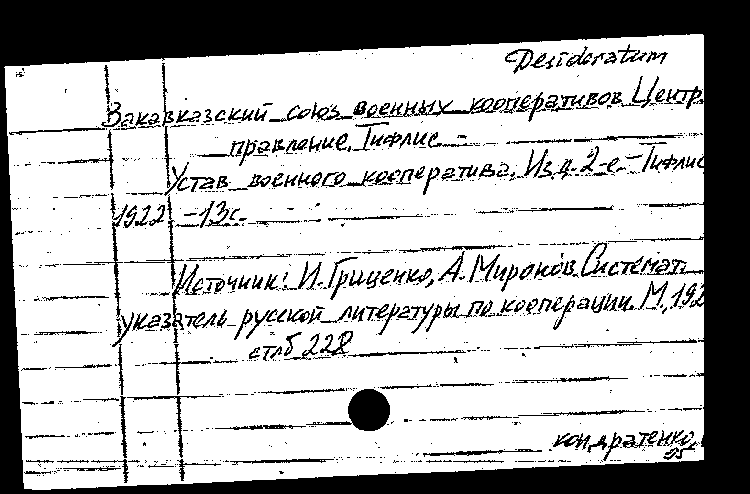 Desideratum
Закавказский союз военных кооперативов Центр.
правление. Тифлис -
Устав военного кооператива. Изд. 2-е. - Тифлис
1922 - 13 с.
Источник: И. Гриценко, А. Миронов Системат.
указатель русской литературы по кооперации. М., 192
стлб 228
кондратенко,